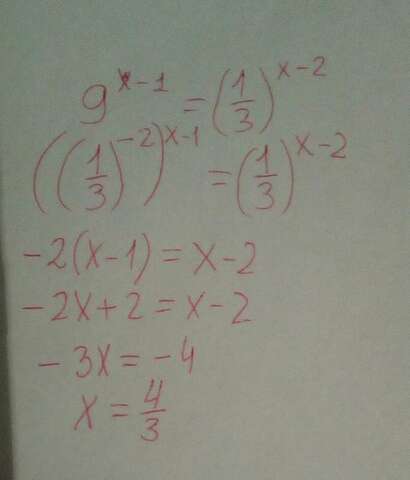 9^(x-1) = (1/3)^(x-2)
((1/3)^(-2))^(x-1) = (1/3)^(x-2)
-2(x-1) = x-2
-2x+2 = x-2
-3x = -4
x = 4/3